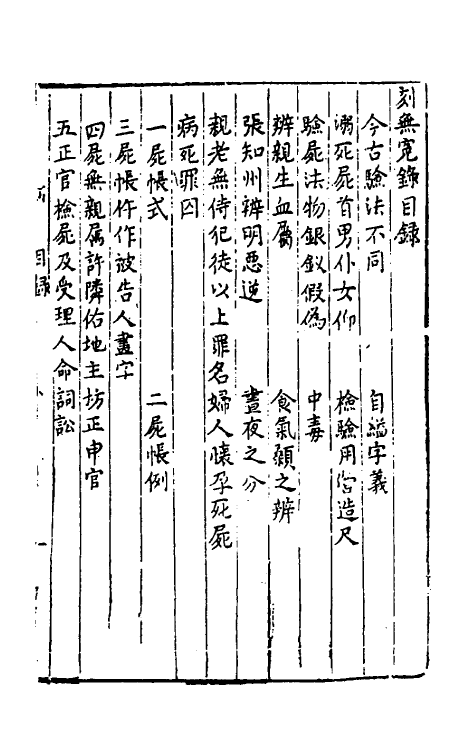 刻無冤錄目錄
今古驗法不同　自縊字義
溺死屍首男仆女仰　檢驗用營造尺
驗屍法物銀釵假偽　中毒
辨親生血屬　食氣顙之辨
張知州辨明惡逆　晝夜之分
親老無侍犯徒以上罪名婦人懷孕死屍
病死罪囚
一屍帳式　二屍帳例
三屍帳仵作被告人畫字
四屍無親属許隣佑地主坊正申官
五正官檢屍及受理人命詞訟
目錄